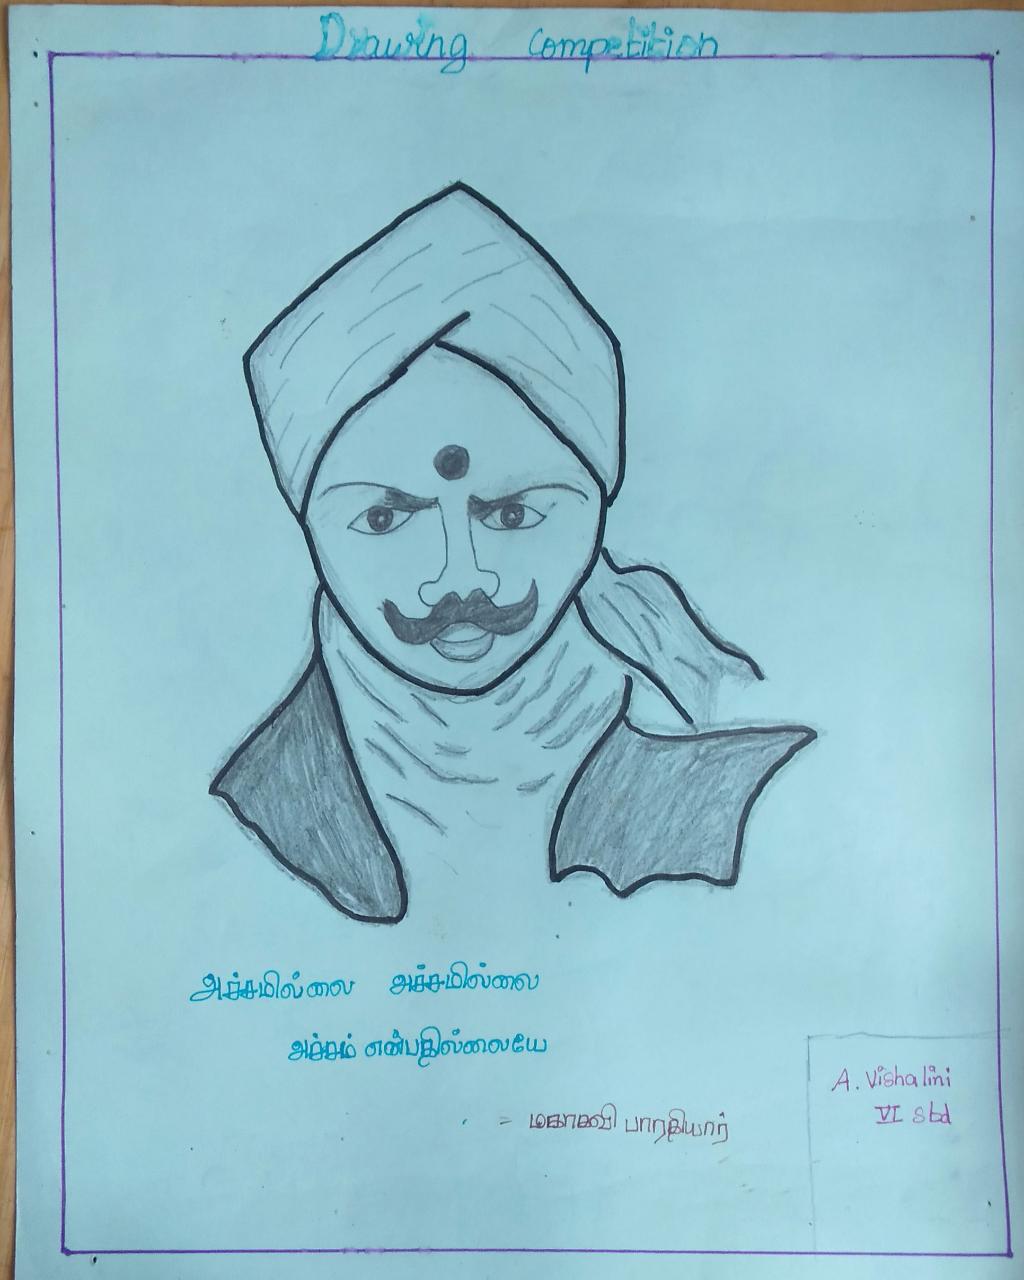 Drawing Competition
அச்சமில்லை அச்சமில்லை
அச்சம் என்பதில்லையே
- மகாகவி பாரதியார்
A. Vishalini
VI std